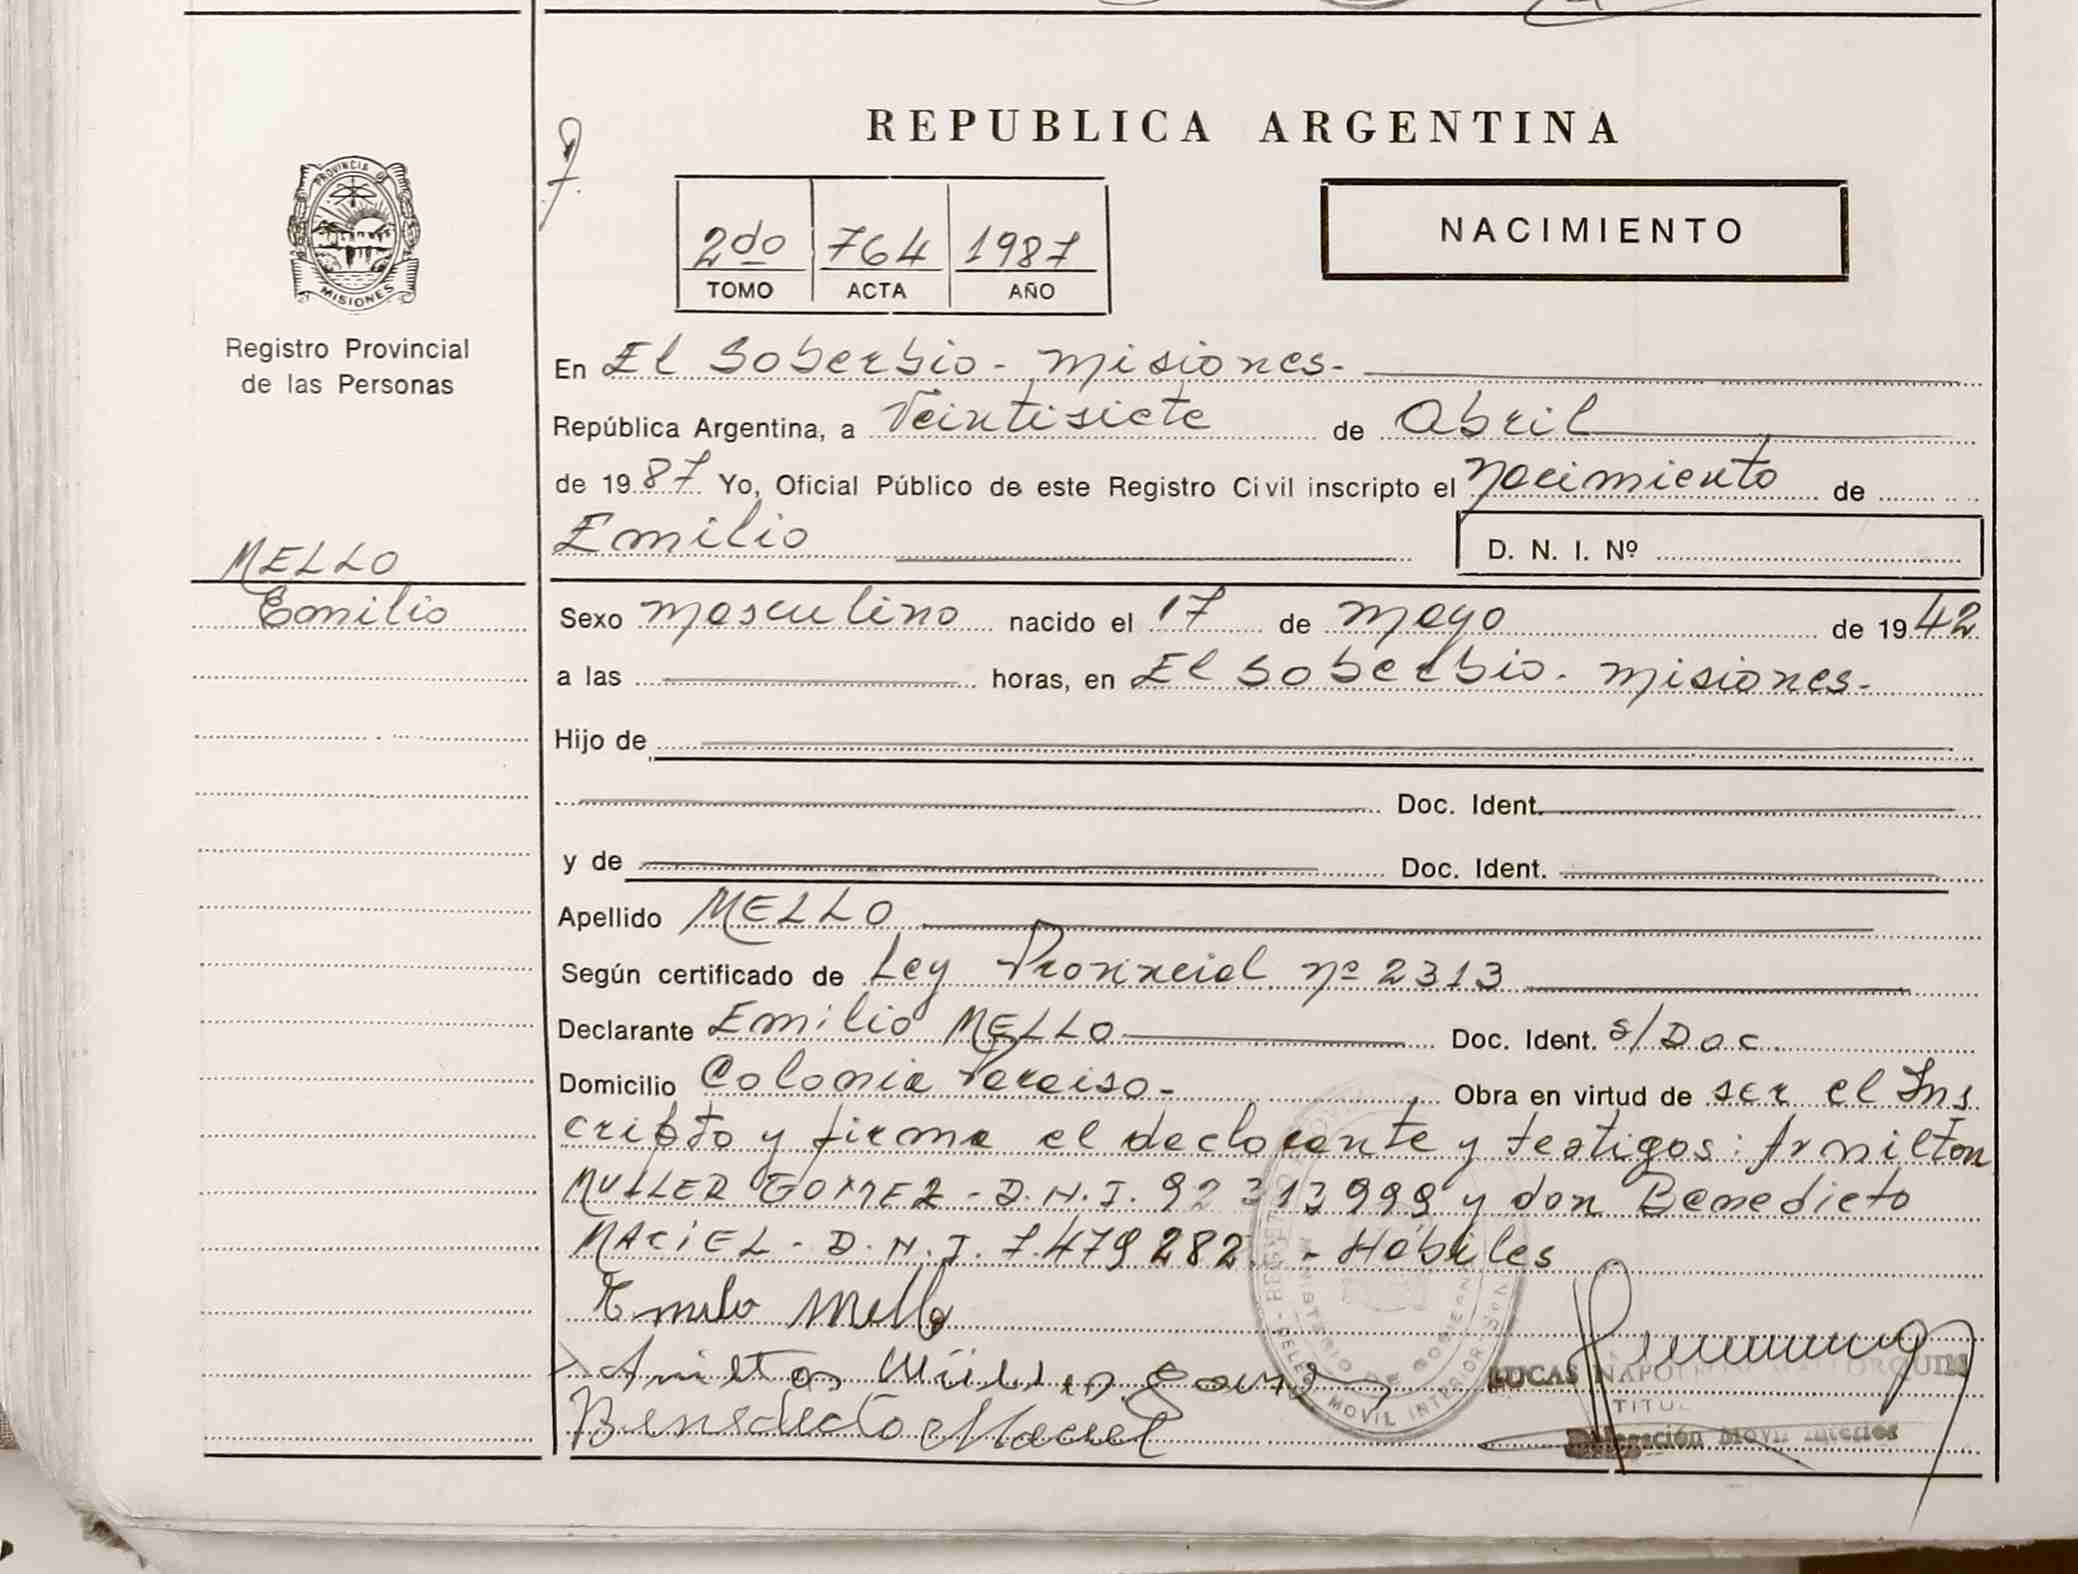 REPUBLICA ARGENTINA
PROVINCIA DE
MISIONES
Registro Provincial
de las Personas
2do 764 1987
TOMO ACTA AÑO
NACIMIENTO
En El Soberbio - Misiones -
República Argentina, a Veintisiete de Abril
de 1987 Yo, Oficial Público de este Registro Civil inscripto el Nacimiento de
Emilio
D. N. I. Nº
MELLO
Emilio
Sexo masculino nacido el 17 de Mayo de 1942
a las horas, en El Soberbio - Misiones -
Hijo de
Doc. Ident.
y de Doc. Ident.
Apellido MELLO
Según certificado de Ley Provincial nº 2313
Declarante Emilio MELLO Doc. Ident. s/Doc
Domicilio Colonia Paraiso - Obra en virtud de ser el Ins
cripto y firma el declarante y testigos: Arnilton
MULLER GOMEZ - D.N.I. 92313999 y don Benedicto
MACIEL - D.N.I. 7.479282. - Hábiles
Emilio Mello
Benedicto Maciel
MINISTERIO DE GOBIERNO
MOVIL INTERIOR
LUCAS
TITU
Delegación Movil Interior